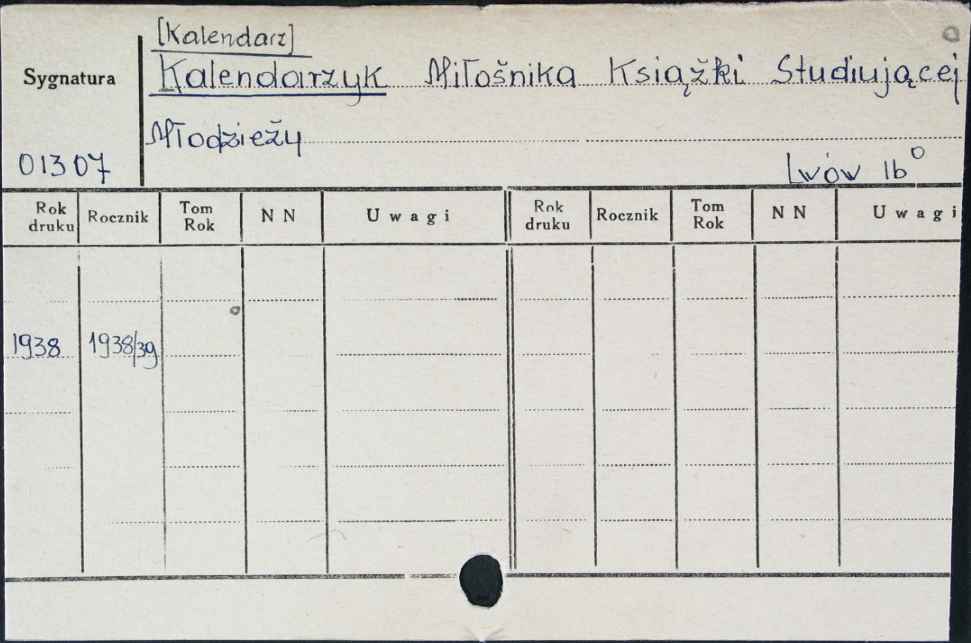 [Kalendarz]
Sygnatura Kalendarzyk Miłośnika Książki Studiującej
Młodzieży
01307 Lwów 16°
Rok druku Rocznik Tom Rok N N Uwagi Rok druku Rocznik Tom Rok N N Uwagi
1938 1938/39